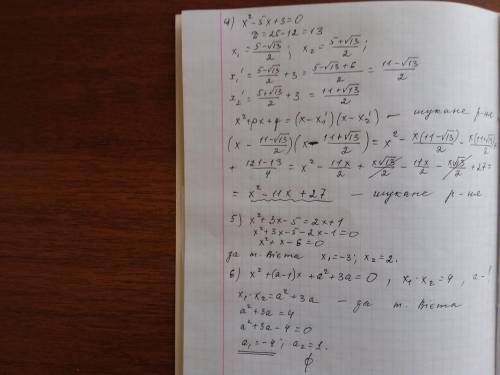 4) x² - 5x + 3 = 0
D = 25 - 12 = 13
x₁ = (5-√13)/2 ; x₂ = (5+√13)/2 ;
x₁' = (5-√13)/2 + 3 = (5-√13+6)/2 = (11-√13)/2
x₂' = (5+√13)/2 + 3 = (11+√13)/2
x² + px + q = (x - x₁')(x - x₂') — шукане р-не
(x - (11-√13)/2)(x - (11+√13)/2) = x² - x(11-√13)/2 - x(11+√13)/2
+ (121-13)/4 = x² - 11x/2 + x√13/2 - 11x/2 - x√13/2 + 27 =
= x² - 11x + 27 — шукане р-не.
5) x² + 3x - 5 = 2x + 1
x² + 3x - 5 - 2x - 1 = 0
x² + x - 6 = 0
за т. Вієта x₁ = -3; x₂ = 2.
6) x² + (a-1)x + a² + 3a = 0 , x₁ · x₂ = 4 , a - ?
x₁ · x₂ = a² + 3a — за т. Вієта
a² + 3a = 4
a² + 3a - 4 = 0
a₁ = -4 ; a₂ = 1.
∅